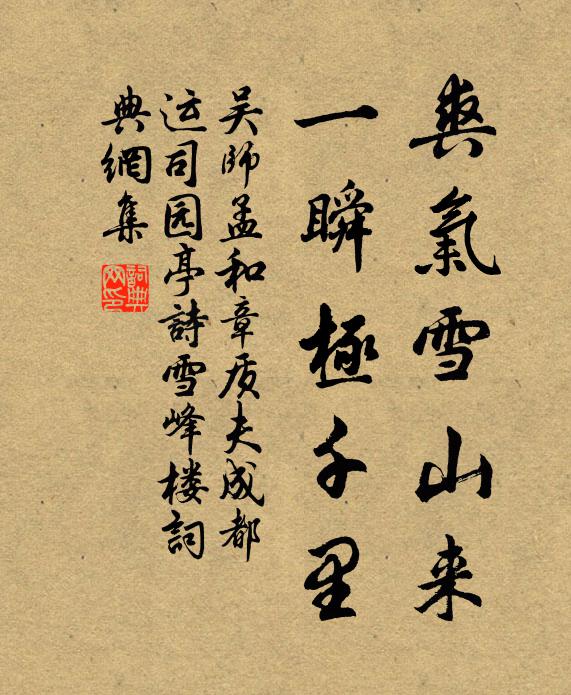 爽氣雪山来
一瞬極千里
吴師孟和章质夫成都
运司园亭詩雪峰楼詞
典網集
詞典网印